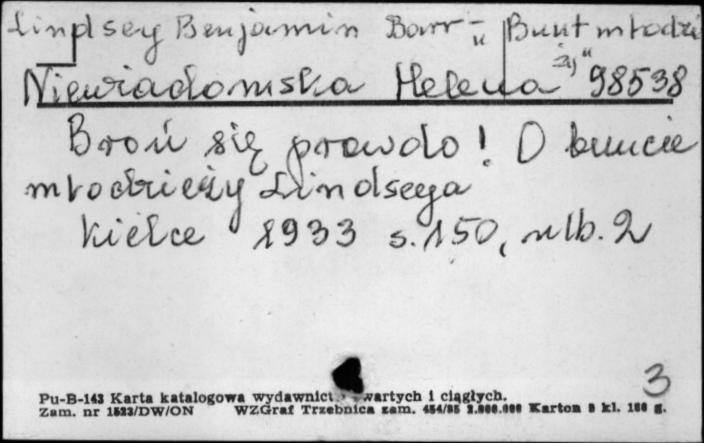 Lindsey Benjamin Barr - „Bunt młodzi
eży"
Niewiadomska Helena 98538
Broń się prawdo! O buncie
młodzieży Lindseya
Kielce 1933 s. 150, nlb. 2
3
Pu-B-143 Karta katalogowa wydawnict wartych i ciągłych.
Zam. nr 1523/DW/ON WZGraf Trzebnica zam. 454/85 2.000.000 Karton kl. 180 g.